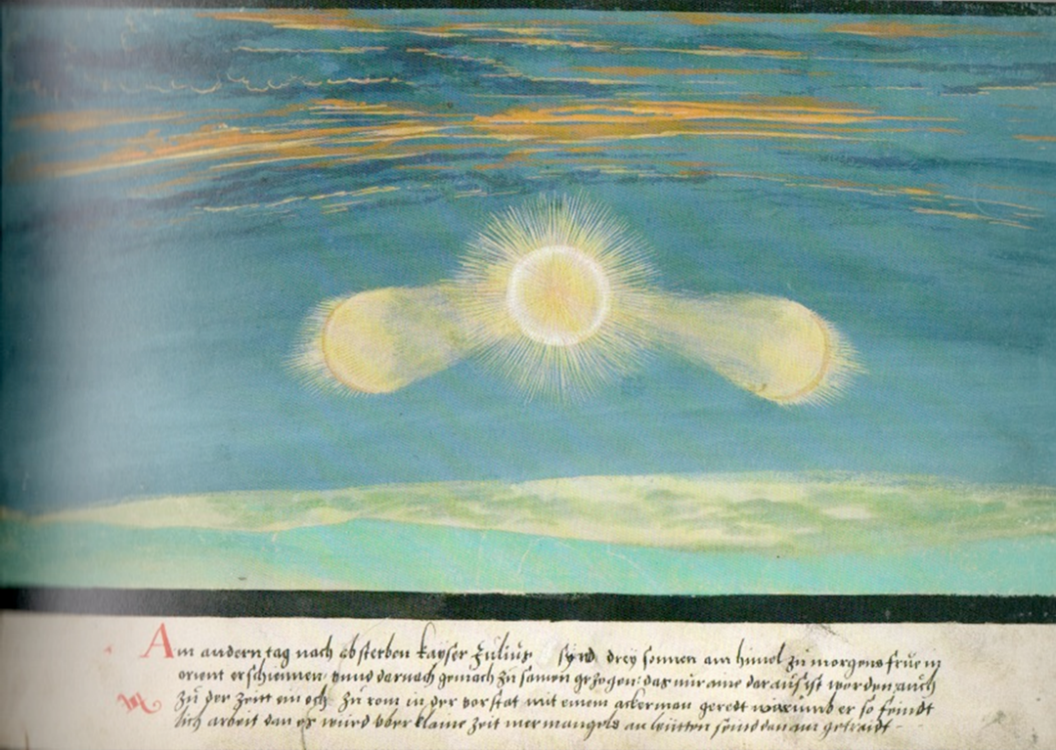 Am andern tag nach absterben kayser Julius synd drey sonnen am himel zu morgens frue in
orient erschiennen: vnnd darnach gemach zu samen gezogen: das nur aine daraus ist worden, auch
zu der Zeitt ein och zu rom in der vorstat mit einem ackerman geredt warumb er so feindt
lich arbeit dan es würd vber klaine zeit mer mangels an leütten seind dan am getraidt